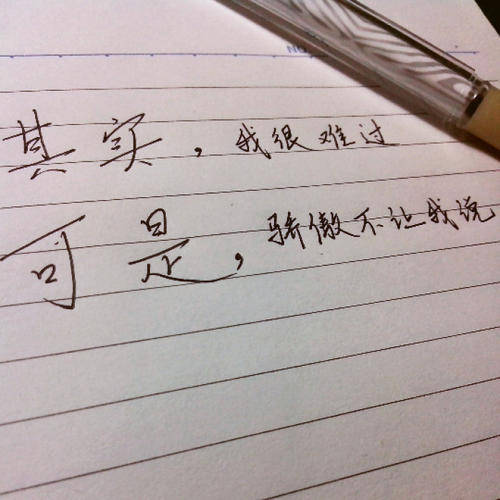 NO
其实,我很难过
可是,骄傲不让我说